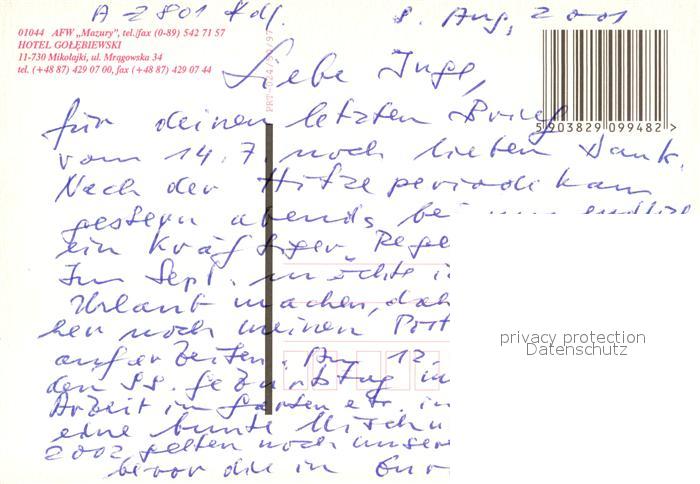 A 2801 Kdf. 8. Aug. 2001
01044 AFW „Mazury”, tel./fax (0-89) 542 71 57
HOTEL GOŁĘBIEWSKI
11-730 Mikołajki, ul. Mrągowska 34
tel. (+48 87) 429 07 00, fax (+48 87) 429 07 44
5 903829 099482 >
Liebe Inge,
für deinen letzten Brief
vom 14.7. noch lieben Dank.
Nach der Hitzeperiode kam
gestern abends bei uns endlich
ein kräftiger Rege
Im Sept. möchte i
Urlaub machen, dah
her noch meinen Post
aufarbeiten. Am 12.
den 55. Geburtstag
Arbeit im Garten etc. in
eine bunte Mischu
2002 gelten noch unsere
bevor die in Eur
privacy protection
Datenschutz